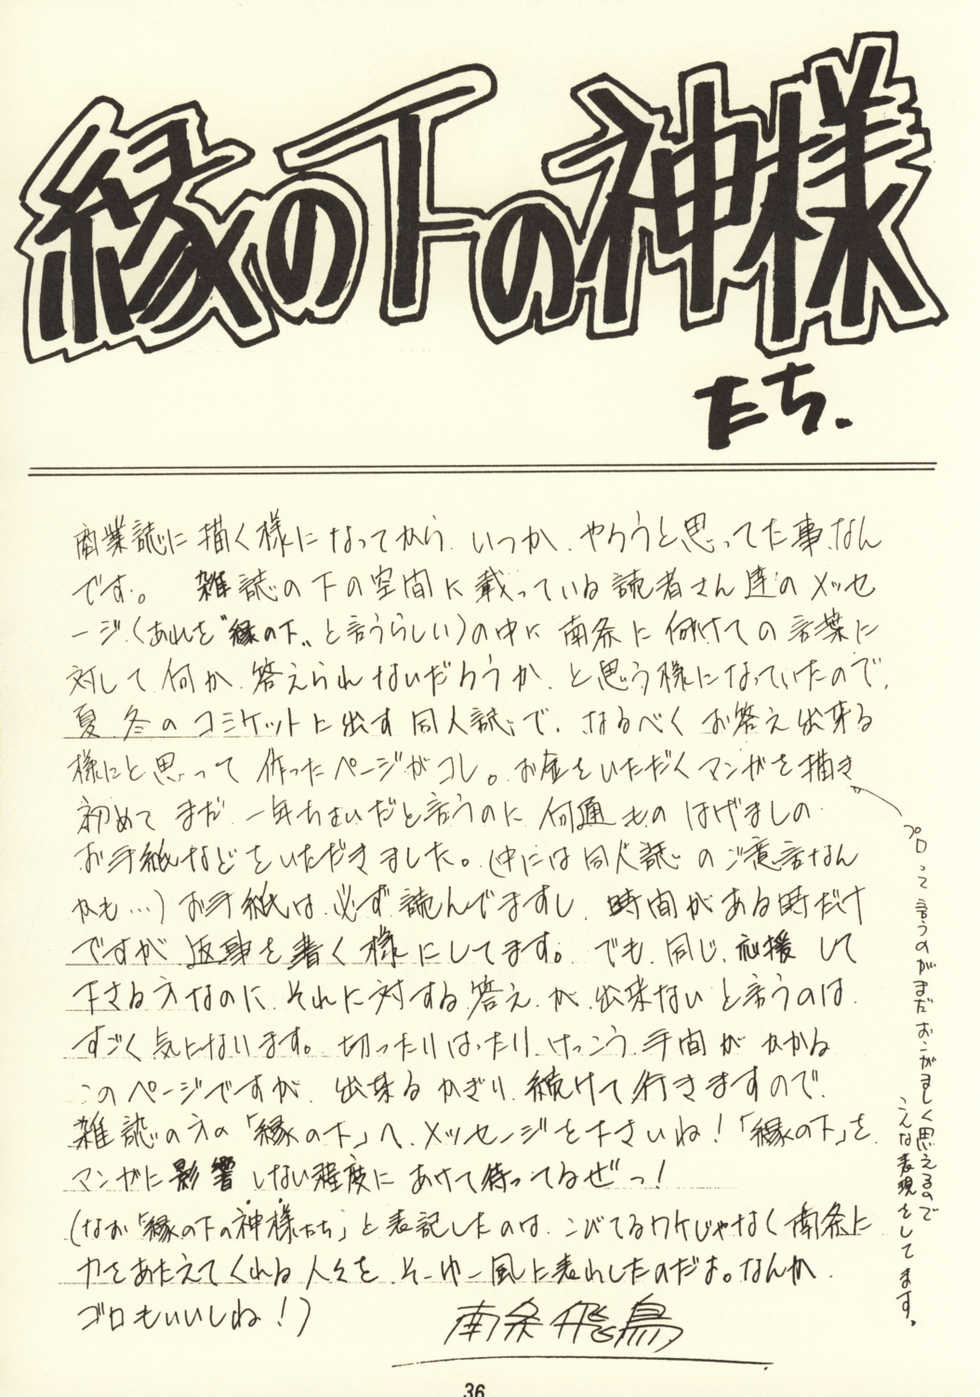 縁の下の神様
たち.
商業誌に描く様になってから、いつか、やろうと思ってた事なん
です。 雑誌の下の空間に載っている読者さん達のメッセ
ージ、(あれを“縁の下”と言うらしい)の中に南条に向けての言葉に
対して何か、答えられないだろうか、と思う様になっていたので、
夏、冬のコミケットに出す同人誌で、なるべくお答え出来る
様にと思って作ったページがコレ。お金をいただくマンガを描き
初めてまだ一年ちょいだと言うのに何通ものはげましの
お手紙などをいただきました。(中には同人誌のご意話なん
かも…)お手紙は、必ず読んでますし、時間がある時だけ
ですが返事を書く様にしてます。でも、同じ、応援して
下さる方なのに、それに対する答え、が、出来ないと言うのは、
すごく気になります。切ったりはったり、けっこう手間がかかる
このページですが、出来るかぎり、続けて行きますので、
雑誌の方の「縁の下」へ、メッセージを下さいね!「縁の下」を
マンガに影響しない程度にあけて待ってるぜっ!
(なお「縁の下の神様たち」と表記したのは、こびてるワケじゃなく南条に
力をあたえてくれる人々を、そーゆー風に表わしたのだよ。なんか、
ゴロもいいしね!)
南条飛鳥
プロって言うのがまだおこがましく思えるので
こんな表現をしてます。
36